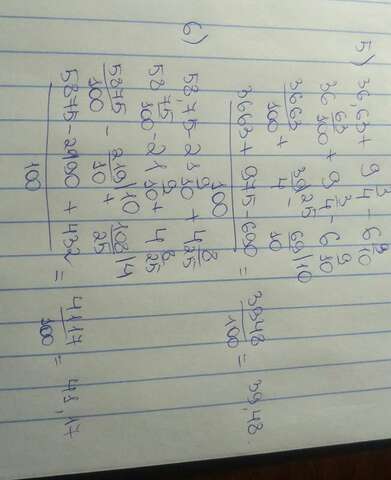 5) 36,63 + 9 3/4 - 6 9/10
36 63/100 + 9 3/4 - 6 9/10
3663/100 + 39/4 |25 - 69/10 |10
3663 + 975 - 690 / 100 = 3948/100 = 39,48.
6) 58,75 - 21 9/10 + 4 8/25
58 75/100 - 21 9/10 + 4 8/25
5875/100 - 219/10 |10 + 108/25 |4
5875 - 2190 + 432 / 100 = 4117/100 = 41,17